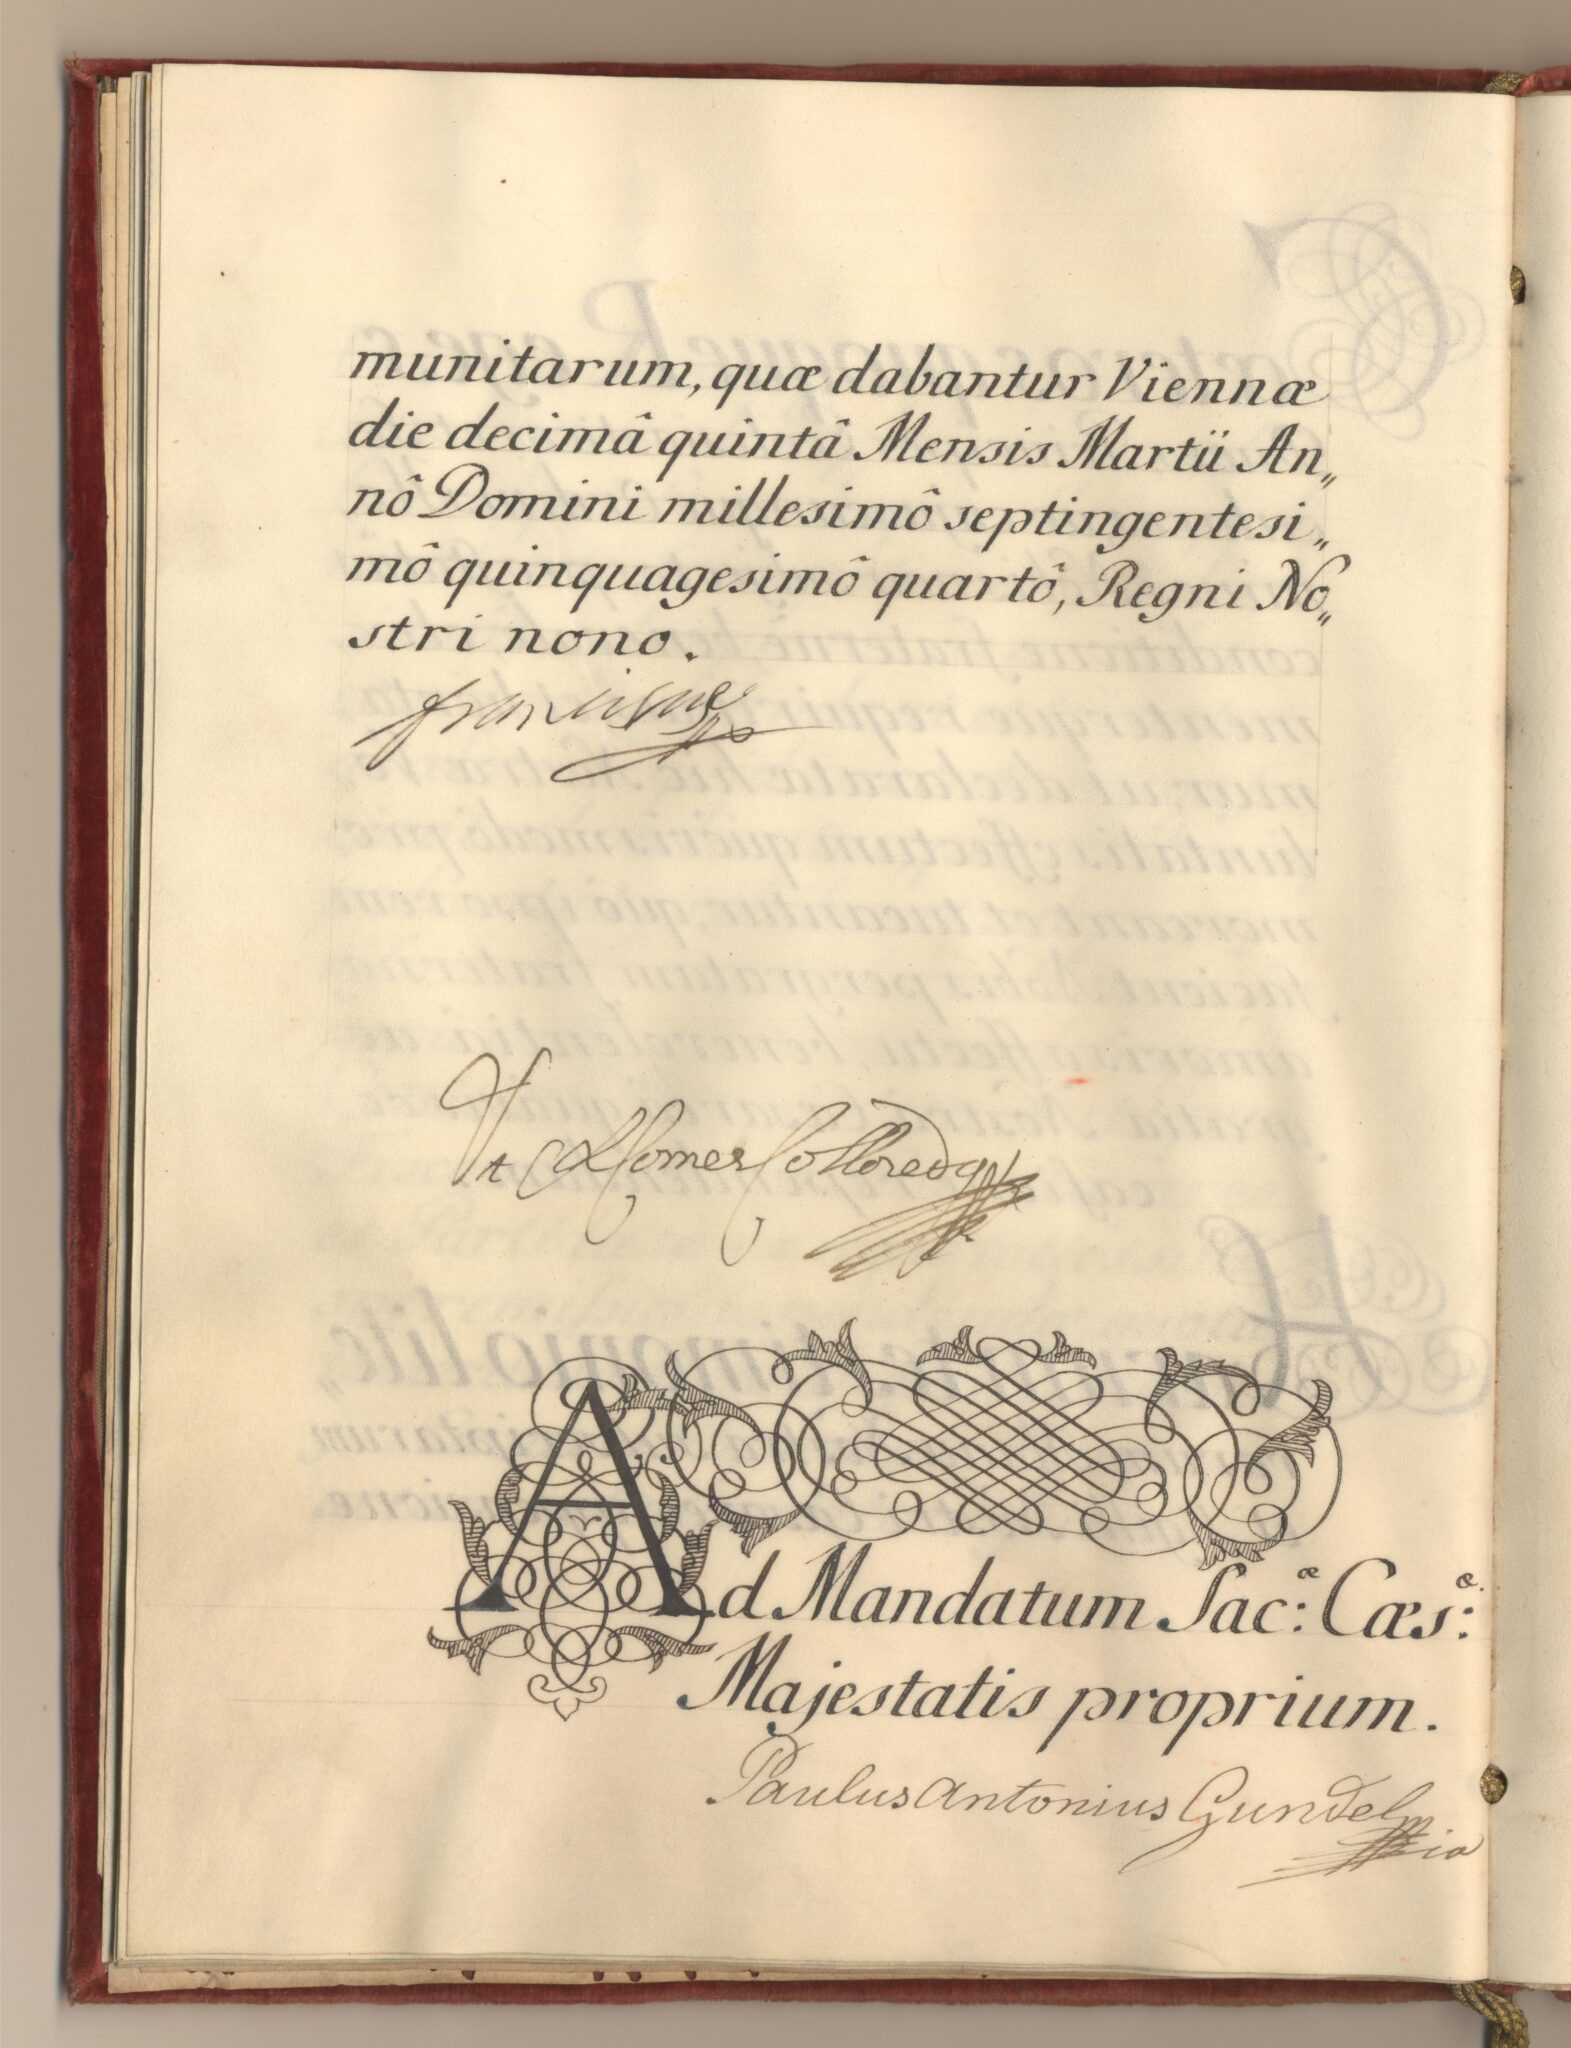 munitarum, quæ dabantur Viennæ
die decimâ quintâ Mensis Martii An„
nô Domini millesimô septingentesi„
mô quinquagesimô quartô, Regni No„
stri nono.
Franciscus
Vt Comes Colloredo
Ad Mandatum Sac:æ Cæs:æ
Majestatis proprium.
Paulus Antonius Gundel